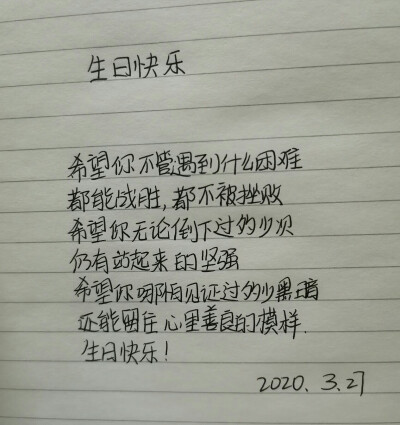 生日快乐
希望你不管遇到什么困难
都能战胜,都不被挫败
希望你无论倒下过多少次
仍有站起来的坚强
希望你哪怕见证过多少黑暗
还能留住心里善良的模样.
生日快乐!
2020. 3.27